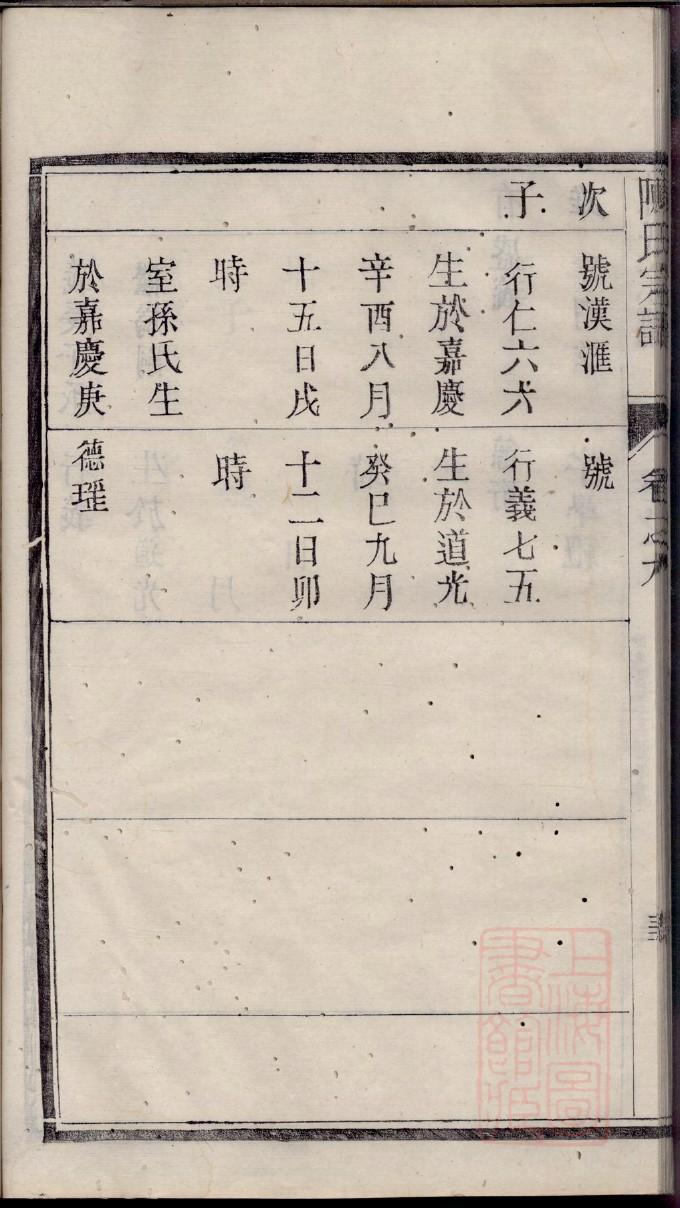 陳氏宗譜
卷之九
次
子
號漢滙
行仁六六
生於嘉慶
辛酉八月
十五日戌
時
室孫氏生
於嘉慶庚
號
行義七五
生於道光
癸巳九月
十二日卯
時
德瑶
上海圖
書館藏